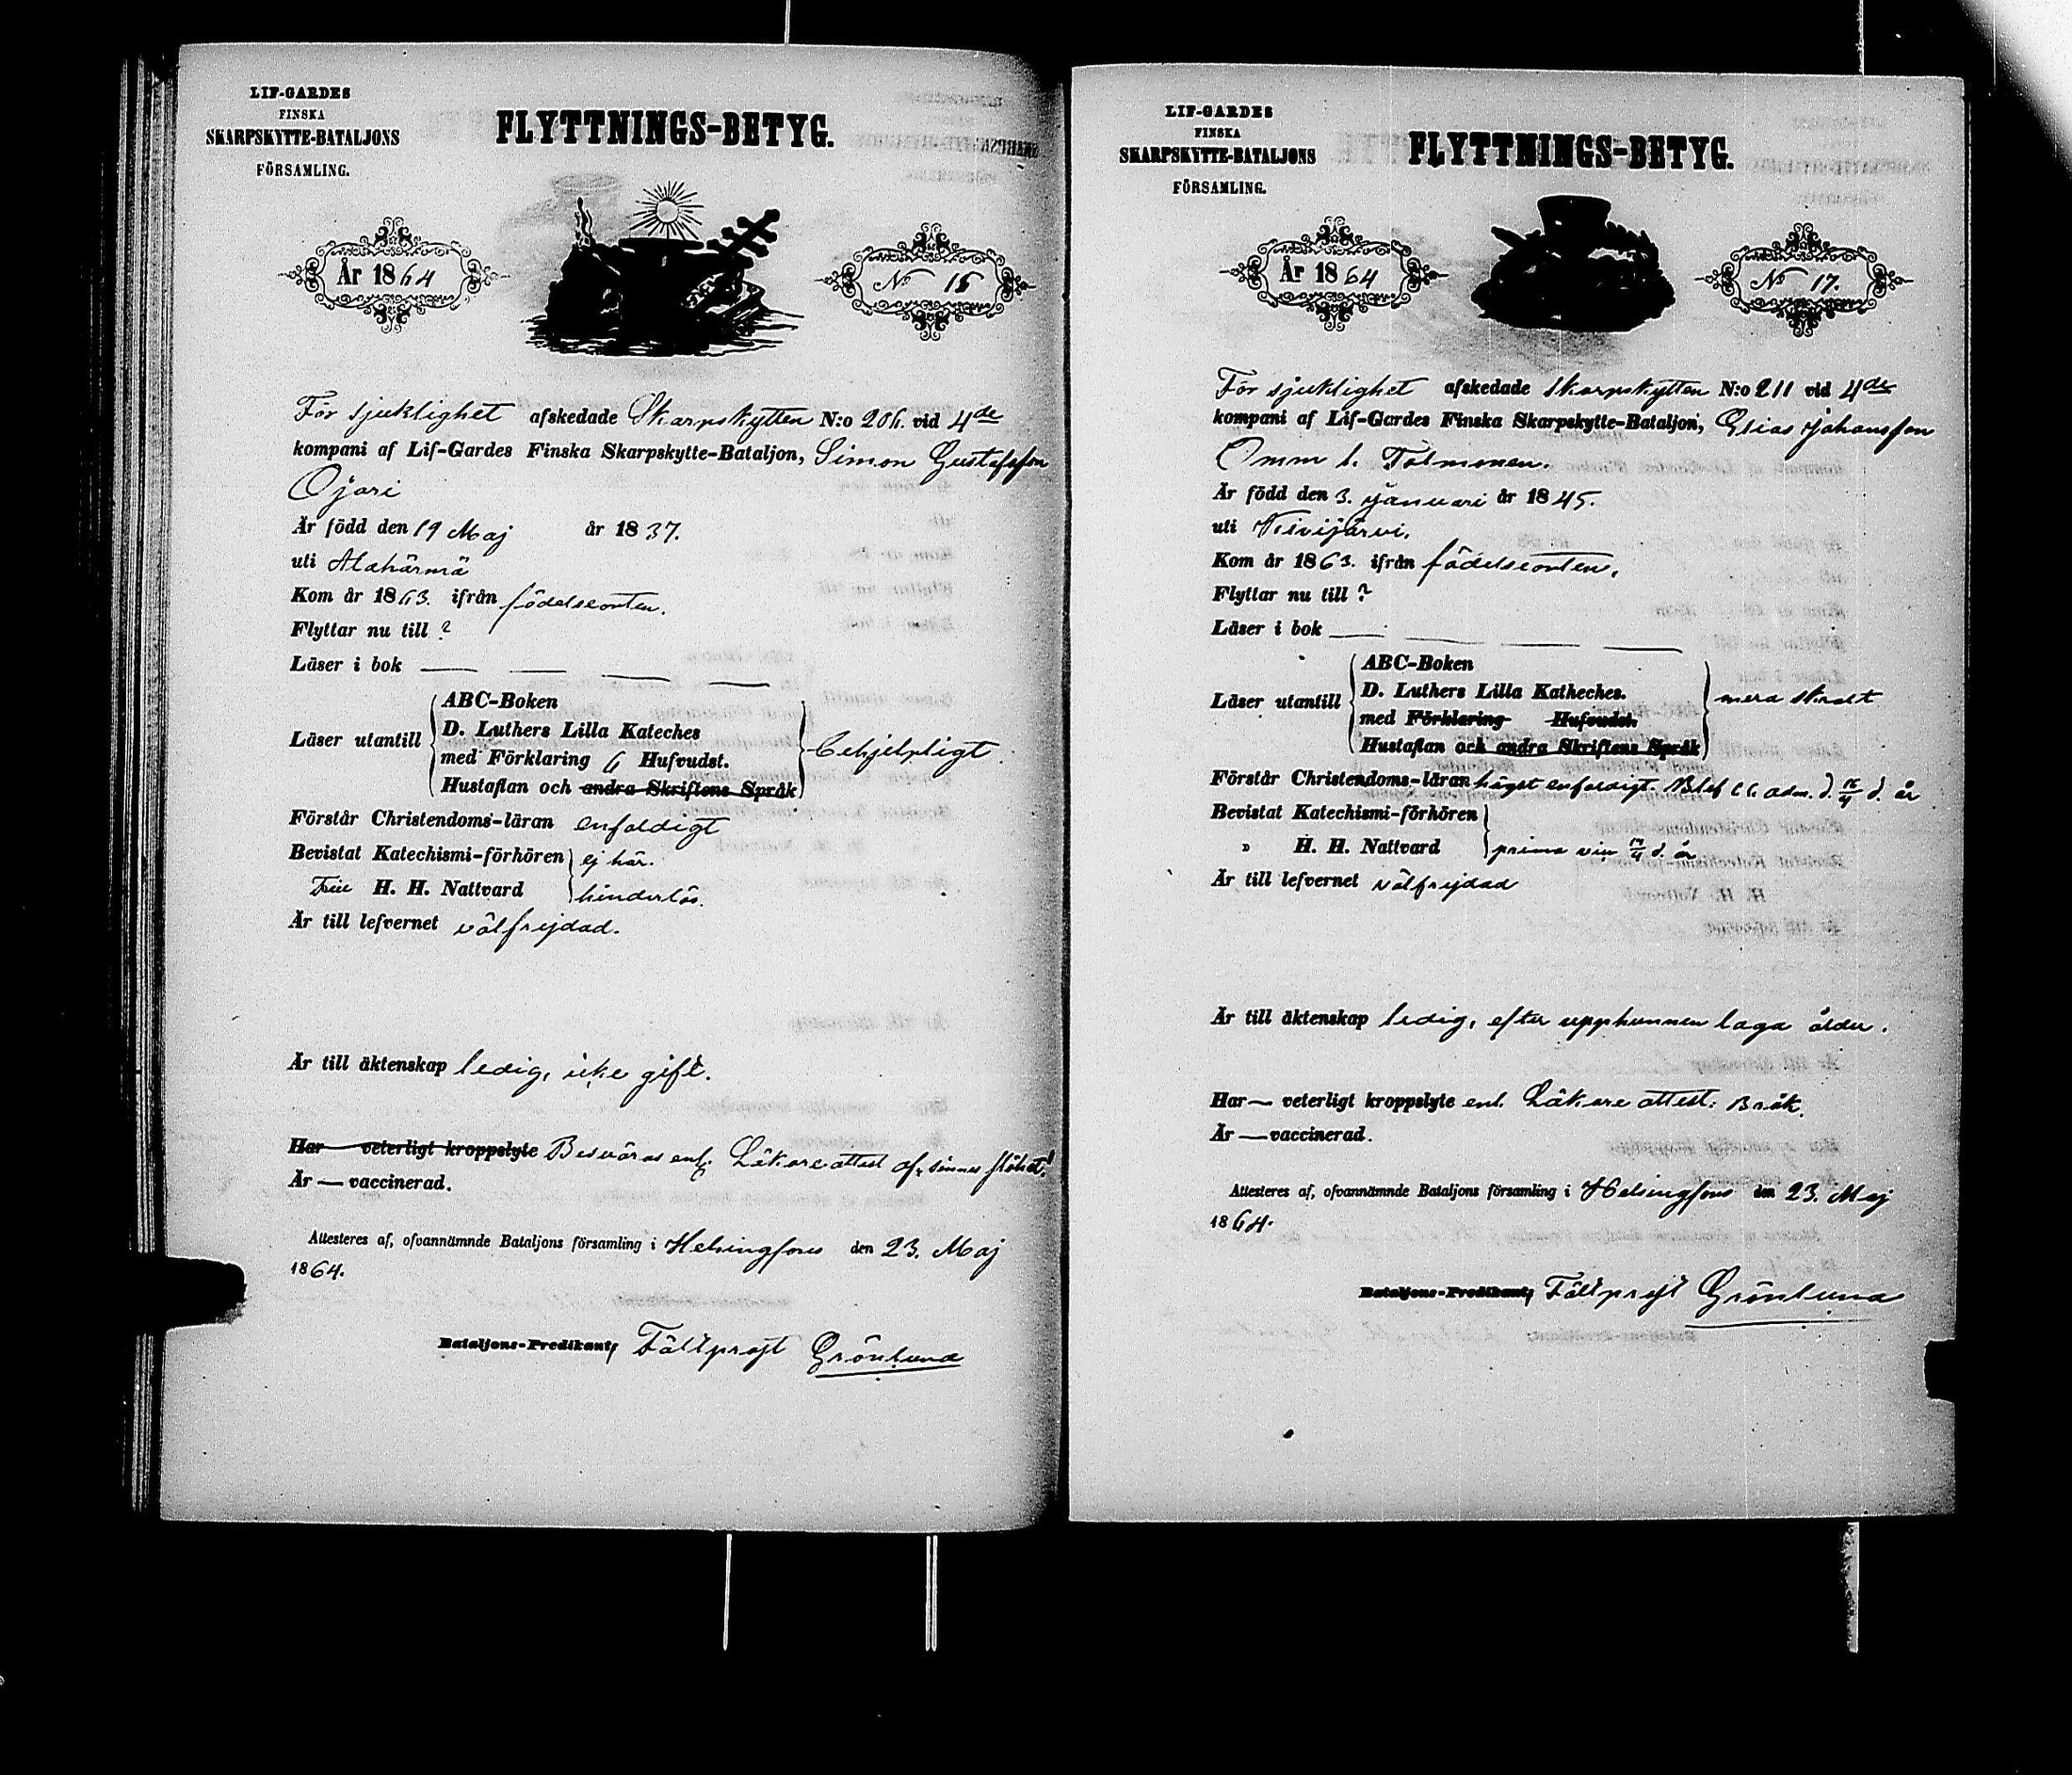 LIF-GARDES
FINSKA
SKARPSKYTTE-BATALJONS
FÖRSAMLING.
FLYTTNINGS-BETYG.
År 1864
No 16
För sjuklighet afskedade Skarpskytten N:o 206. vid 4de
kompani af Lif-Gardes Finska Skarpskytte-Bataljon, Simon Gustafsson
Ojari
Är född den 19 Maj år 1837.
uti Alahärmä
Kom år 1863. ifrån födelseorten.
Flyttar nu till ?
Läser i bok — — — —
Läser utantill
ABC-Boken
D. Luthers Lilla Kateches
med Förklaring 6 Hufvudst.
Hustaflan och andra Skriftens Språk
behjelpligt.
Förstår Christendoms-läran enfaldigt
Bevistat Katechismi-förhören ej här.
H. H. Nattvard hinderlös.
Är till lefvernet välfrejdad.
Är till äktenskap ledig, icke gift.
Har — veterligt kroppslyte Besväras enl. Läkare attest af sinnes slöhet.
Är — vaccinerad.
Attesteres af, ofvannämnde Bataljons församling i Helsingfors den 23. Maj
1864.
Bataljons-Predikant, Fältprost Grönlund
LIF-GARDES
FINSKA
SKARPSKYTTE-BATALJONS
FÖRSAMLING.
FLYTTNINGS-BETYG.
År 1864
No 17.
För sjuklighet afskedade Skarpskytten N:o 211 vid 4de
kompani af Lif-Gardes Finska Skarpskytte-Bataljon, Elias Johansson
Är född den 3. Januari år 1845.
uti
Kom år 1863. ifrån födelseorten.
Flyttar nu till ?
Läser i bok — — — —
Läser utantill
ABC-Boken
D. Luthers Lilla Katheches.
med Förklaring Hufvudst.
Hustaflan och andra Skriftens Språk
mera skralt
Förstår Christendoms-läran högst enfaldigt. Blef adm. d. d. år
Bevistat Katechismi-förhören
" H. H. Nattvard prima d. år
Är till lefvernet välfrejdad
Är till äktenskap ledig, efter upphunnen laga ålder.
Har — veterligt kroppslyte enl. Läkare attest: Bråk.
Är — vaccinerad.
Attesteres af, ofvannämnde Bataljons församling i Helsingfors den 23. Maj
1864.
Bataljons-Predikant, Fältprost Grönlund